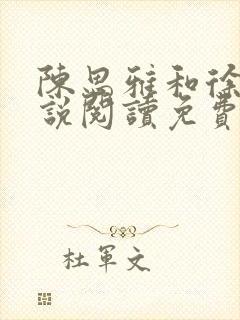 陳思雅和徐
說閱讀免費
杜軍文